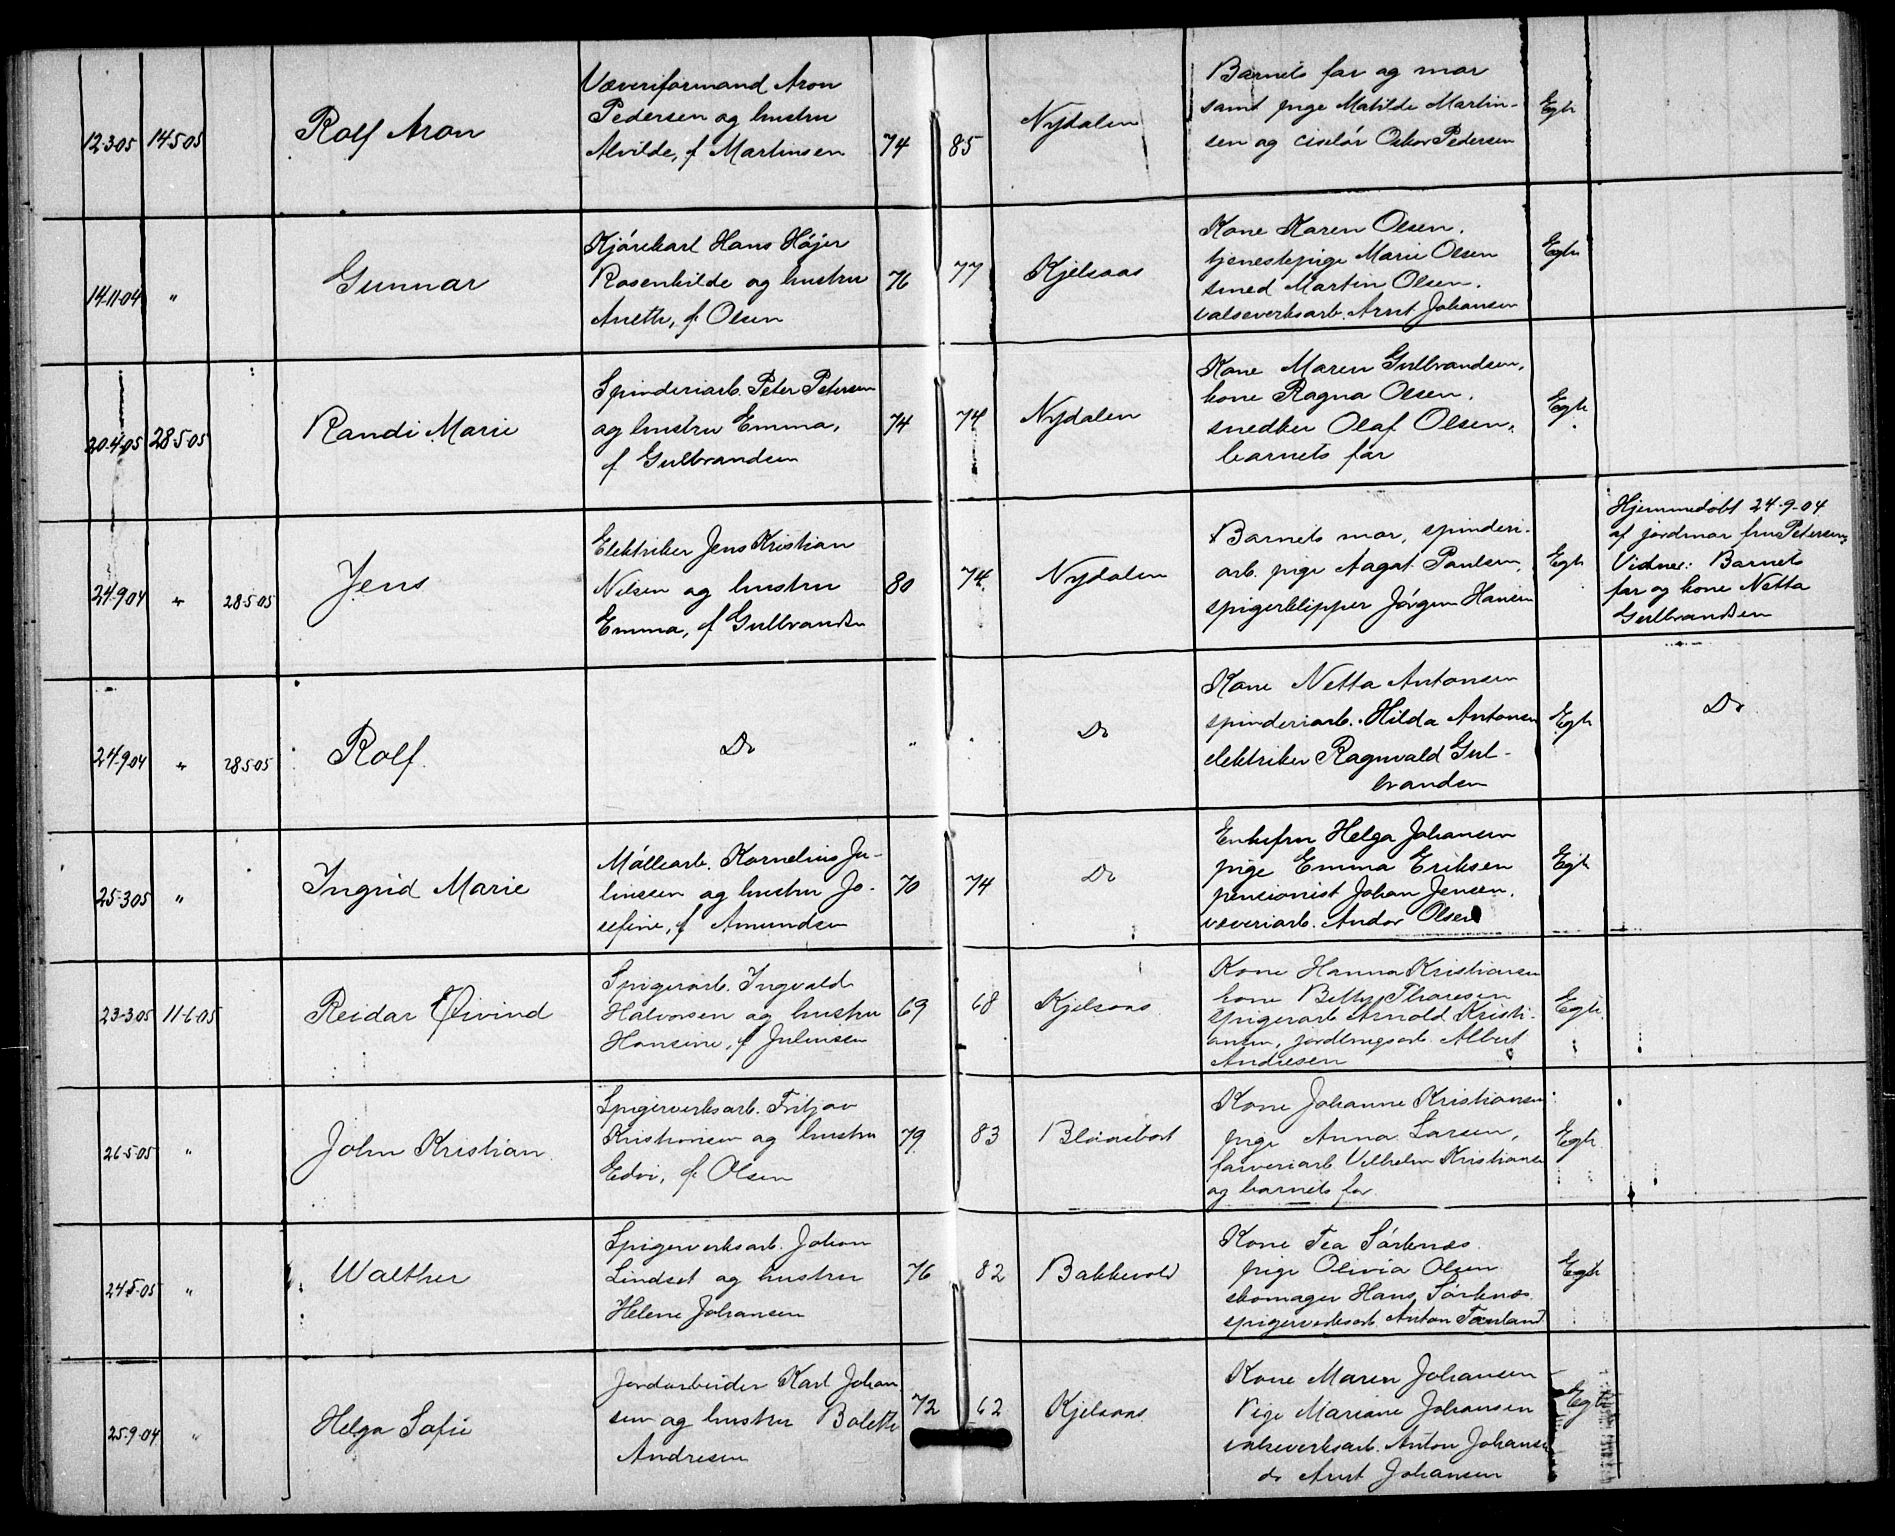 12-3-05 14-5-05
Rolf Aron
Væveriformand Aron
Pedersen og hustru
Alvilde, f Martinsen
74
85
Nydalen
Barnets far og mor
samt pige Matilde Martin-
sen og ciselør Oskar Pedersen
Egte
14-11-04 "
Gunnar
Kjørekarl Hans Højer
Rosenkilde og hustru
Anethe, f Olsen
76
77
Kjelsaas
Kone Karen Olsen.
tjenestepige Marie Olsen
smed Martin Olsen.
valseverksarb. Arnt Johansen
Egte
20-4-05 28-5-05
Randi Marie
Spinderiarb. Peter Petersen
og hustru Emma,
f Gulbrandsen
74
74
Nydalen
Kone Maren Gulbrandsen,
kone Ragna Olsen.
snedker Olaf Olsen,
barnets far
Egte
24-9-04 " 28-5-05
Jens
Elektriker Jens Kristian
Nilsen og hustru
Emma, f Gulbrandsen
80
74
Nydalen
Barnets mor, spinderi-
arb. pige Aagot Paulsen
spigerklipper Jørgen Hansen
Egte
Hjemmedøbt 24-9-04
af jordmor fru Petersen,
Vidner: Barnets
far og kone Netta
Gulbrandsen
24-9-04 " 28-5-05
Rolf
Do
"
Do
Kone Netta Antonsen
spinderiarb. Hilda Antonsen
elektriker Ragnvald Gul-
brandsen
Egte
Do
25-3-05 "
Ingrid Marie
Møllearb. Kornelius Ju-
linssen og hustru Jo-
sefine, f Amundsen
70
74
Do
Enkefru Helga Johansen
pige Emma Eriksen
pensionist Johan Jensen.
væveriarb. Andor Olsen
Egte
23-3-05 11-6-05
Reidar Øivind
Spigerarb. Ingvald
Halvorsen og hustru
Hansine, f Juliussen
69
68
Kjelsaas
Kone Hanna Kristiansen
kone Betty Thoresen
spigerarb Arnold Kristi-
ansen, jordbrugsarb. Albert
Andresen
Egte
26-5-05 "
John Kristian
Spigerverksarb. Fritjov
Kristiansen og hustru
Edvi, f Olsen
79
83
Blaasbort
Kone Johanne Kristiansen
pige Anna Larsen,
farveriarb Vilhelm Kristiansen
og barnets far
Egte
24-5-05 "
Walther
Spigerverksarb. Johan
Lindset og hustru
Helene Johansen
76
82
Bakkevold
Kone Tea Sørknæs
pige Olivia Olsen
skomager Hans Sørknæs.
spigerverksarb Anton
Egte
25-9-04 "
Helga Sofie
Jordarbeider Karl Johan
sen og hustru Bolette
Andresen
72
62
Kjelsaas
Kone Maren Johansen
Pige Mariane Johansen
valseverksarb. Anton Johansen
do Arnt Johansen
Egte